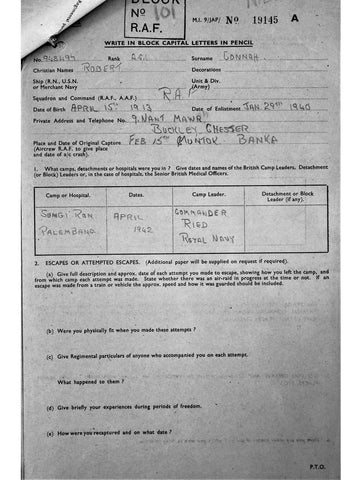 Nº 101
R.A.F.
M.I. 9/JAP/ Nº 19145 A
WRITE IN BLOCK CAPITAL LETTERS IN PENCIL
No. 948497 Rank A.C.1 Surname CONNAH
Christian Names ROBERT Decorations
Ship (R.N., U.S.N. or Merchant Navy) Unit & Div. (Army)
Squadron and Command (R.A.F., A.A.F.) RAF
Date of Birth APRIL 15TH 1913 Date of Enlistment JAN 29TH 1940
Private Address and Telephone No. 9. NANT MAWR
BUCKLEY CHESTER
Place and Date of Original Capture FEB 15TH MUNTOK BANKA
(Aircrew R.A.F. to give place and date of a/c crash).
1. What camps, detachments or hospitals were you in ? Give dates and names of the British Camp Leaders, Detachment
(or Block) Leaders or, in the case of hospitals, the Senior British Medical Officers.
Camp or Hospital. Dates. Camp Leader. Detachment or Block Leader (if any).
SUNGI RON APRIL COMMANDER
PALEMBANG 1942 RIED
ROYAL NAVY
2. ESCAPES OR ATTEMPTED ESCAPES. (Additional paper will be supplied on request if required).
(a) Give full description and approx. date of each attempt you made to escape, showing how you left the camp, and
from which camp each attempt was made. State whether there was an air-raid in progress at the time or not. If an
escape was made from a train or vehicle the approx. speed and how it was guarded should be included.
(b) Were you physically fit when you made these attempts ?
(c) Give Regimental particulars of anyone who accompanied you on each attempt.
What happened to them ?
(d) Give briefly your experiences during periods of freedom.
(e) How were you recaptured and on what date ?
P.T.O.